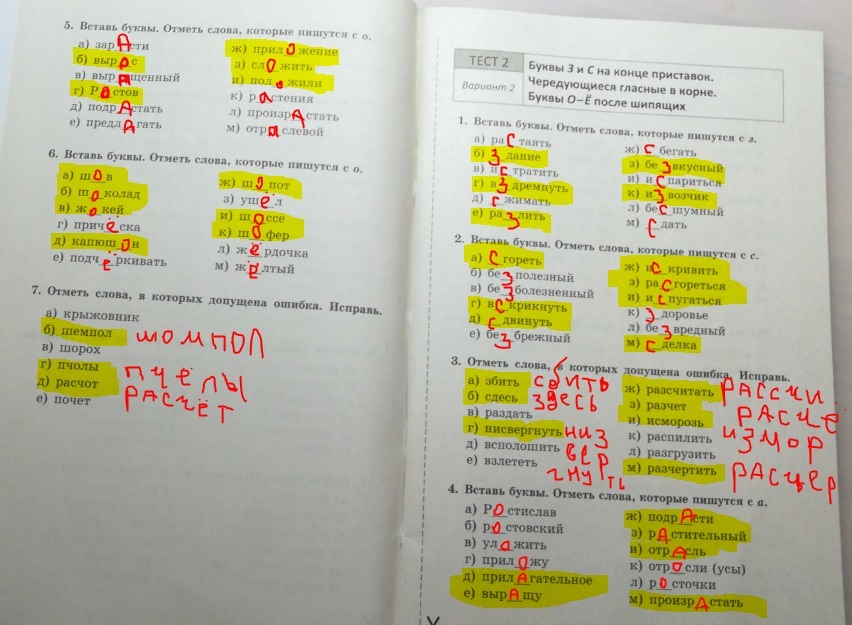 5. Вставь буквы. Отметь слова, которые пишутся с о.
а) зарАсти
б) вырос
в) вырАщенный
г) Ростов
д) подрАстать
е) предлАгать
ж) приложение
з) сложить
и) положили
к) рАстения
л) произрАстать
м) отрАслевой
6. Вставь буквы. Отметь слова, которые пишутся с о.
а) шов
б) шоколад
в) жокей
г) причёска
д) капюшон
е) подчёркивать
ж) шопот
з) ушёл
и) шоссе
к) шофер
л) жёрдочка
м) жёлтый
7. Отметь слова, в которых допущена ошибка. Исправь.
а) крыжовник
б) шемпол шомпол
в) шорох
г) пчолы пчёлы
д) расчот расчёт
е) почет
ТЕСТ 2
Вариант 2
Буквы З и С на конце приставок.
Чередующиеся гласные в корне.
Буквы О–Ё после шипящих
1. Вставь буквы. Отметь слова, которые пишутся с з.
а) раСтаять
б) Здание
в) иСтратить
г) вЗдремнуть
д) Сжимать
е) раЗлить
ж) Сбегать
з) беЗвкусный
и) иСпариться
к) иЗвозчик
л) беСшумный
м) Сдать
2. Вставь буквы. Отметь слова, которые пишутся с с.
а) Сгореть
б) беЗполезный
в) беЗболезненный
г) вСкрикнуть
д) Сдвинуть
е) беЗбрежный
ж) иСкривить
з) раСгореться
и) иСпугаться
к) Здоровье
л) беЗвредный
м) Сделка
3. Отметь слова, в которых допущена ошибка. Исправь.
а) збить сбить
б) сдесь здесь
в) раздать
г) нисвергнуть низ
вер
гнуть
д) всполошить
е) взлететь
ж) разсчитать рассчи
з) разчет расче
и) исморозь измор
к) распилить
л) разгрузить
м) разчертить расчер
4. Вставь буквы. Отметь слова, которые пишутся с а.
а) Ростислав
б) ростовский
в) уложить
г) приложу
д) прилАгательное
е) вырАщу
ж) подрАсти
з) рАстительный
и) отрАсль
к) отросли (усы)
л) росточки
м) произрАстать